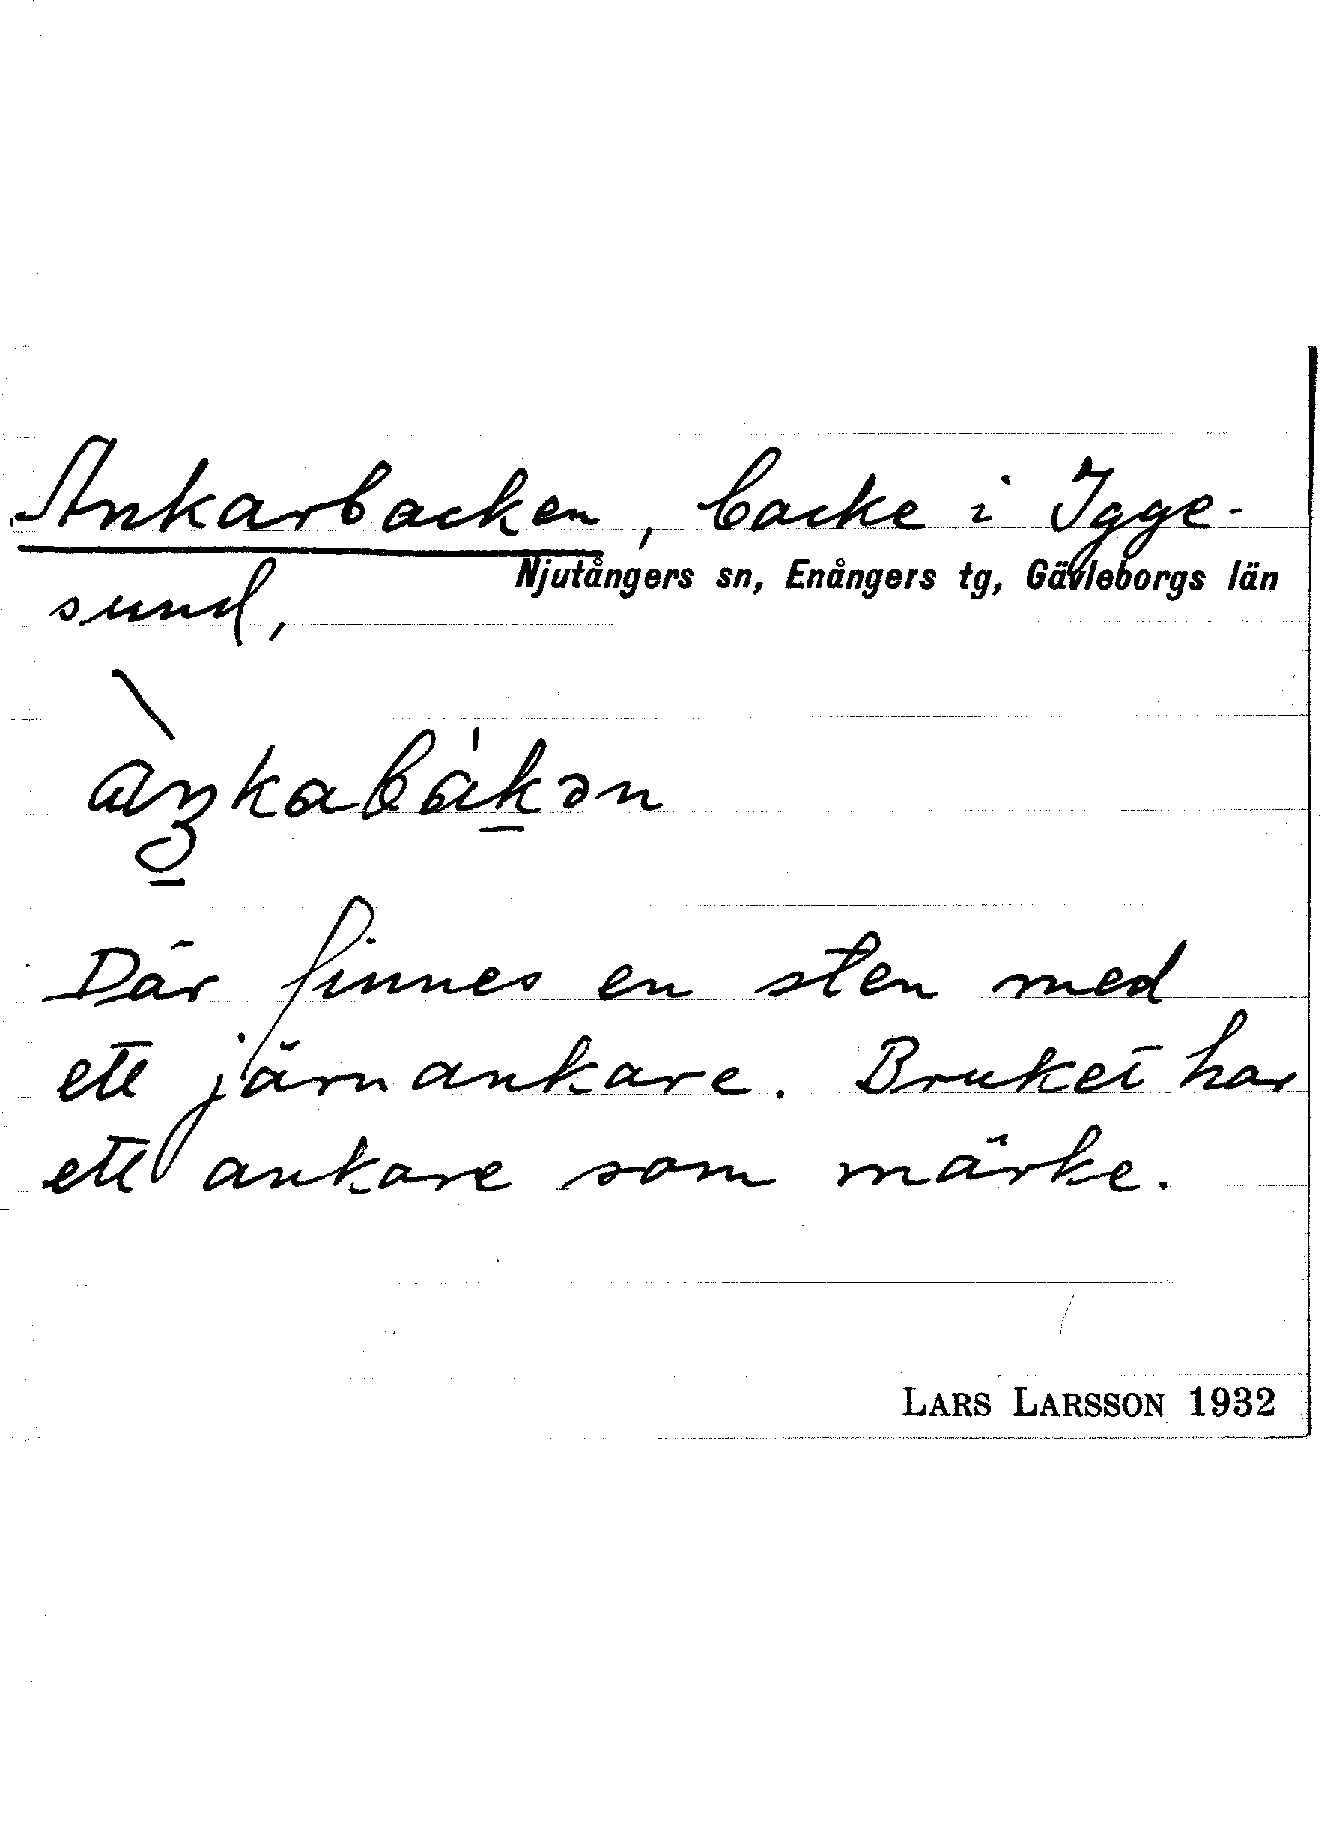 Ankarbacken, backe i Igge-
Njutångers sn, Enångers tg, Gävleborgs län
sund,
àŋkabákən
Där finnes en sten med
ett järnankare. Bruket har
ett ankare som märke.
LARS LARSSON 1932